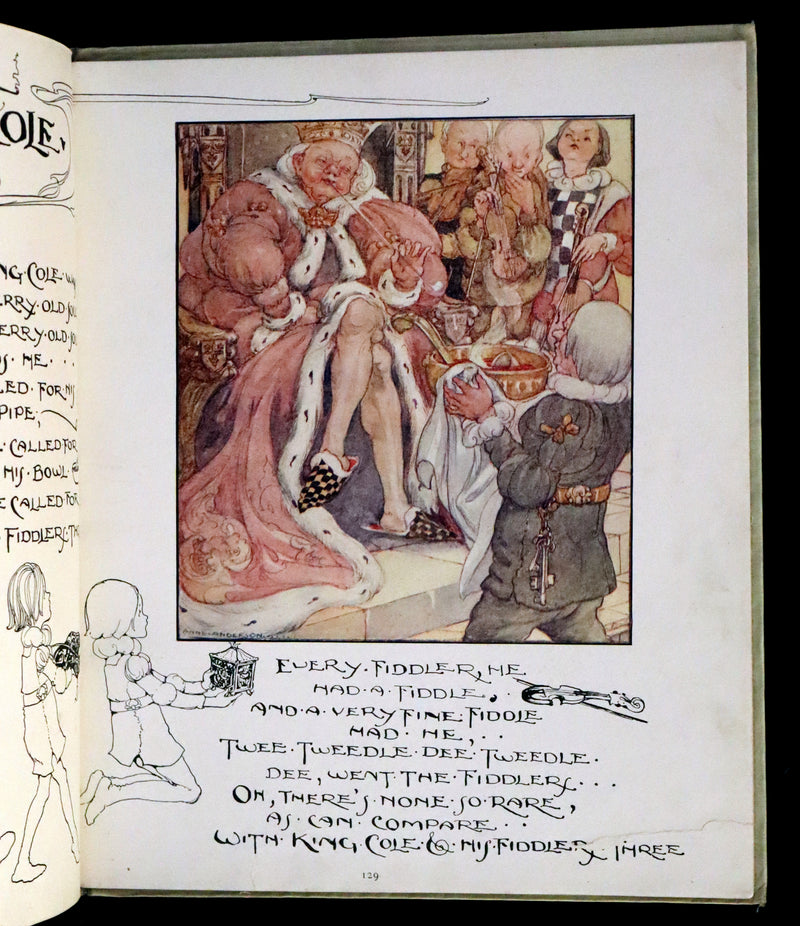 OLE,
NG·COLE·
RRY·OLD·
ERRY·OLD·
HE···
LED·FOR·HIS
PIPE;
CALLED·FOR
HIS·BOWL·
E·CALLED·FOR
FIDDLERS·
ANNE·ANDERSON
EVERY·FIDDLER, HE
HAD·A·FIDDLE,··
AND·A·VERY·FINE·FIDDLE
HAD·HE,··
TWEE·TWEEDLE·DEE·TWEEDLE·
DEE, WENT·THE·FIDDLERS···
OH, THERE'S·NONE·SO·RARE,
AS·CAN·COMPARE··
WITH·KING·COLE·&·HIS·FIDDLERS THREE
129